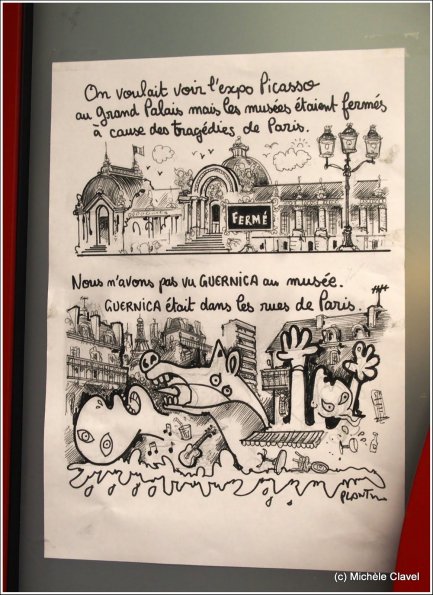 On voulait voir l'expo Picasso
au Grand Palais mais les musées étaient fermés
à cause des tragédies de Paris.
FERMÉ
Nous n'avons pas vu GUERNICA au musée.
GUERNICA était dans les rues de Paris.
PLANTU
(c) Michèle Clavel